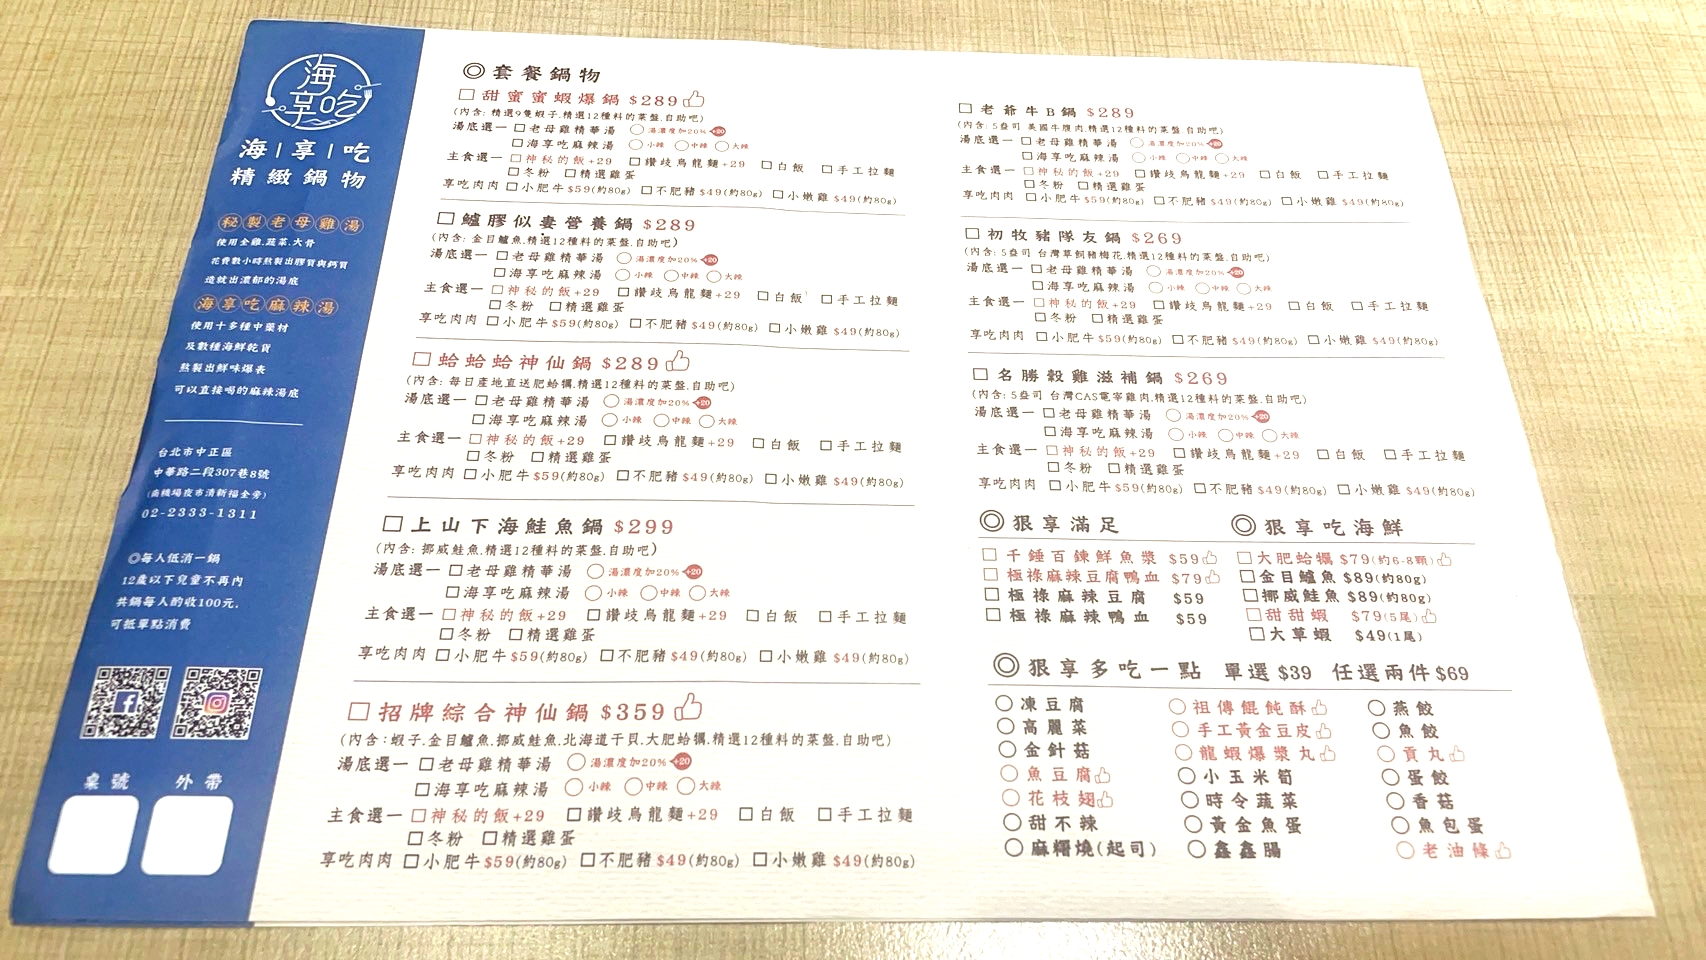 海享吃
海|享|吃
精緻鍋物
秘製老母雞湯
使用全雞.蔬菜.大骨
花費數小時熬製出膠質與鈣質
造就出濃郁的湯底
海享吃麻辣湯
使用十多種中藥材
及數種海鮮乾貨
熬製出鮮味爆表
可以直接喝的麻辣湯底
台北市中正區
中華路二段307巷8號
(南機場夜市清新福全旁)
02-2333-1311
◎每人低消一鍋
12歲以下兒童不再內
共鍋每人酌收100元.
可抵單點消費
桌號 外帶
◎套餐鍋物
□甜蜜蜜蝦爆鍋 $289
(內含: 精選9隻蝦子.精選12種料的菜盤.自助吧)
湯底選一 □老母雞精華湯 ○湯濃度加20% +20
□海享吃麻辣湯 ○小辣 ○中辣 ○大辣
主食選一 □神秘的飯+29 □讚歧烏龍麵+29 □白飯 □手工拉麵
□冬粉 □精選雞蛋
享吃肉肉 □小肥牛$59(約80g) □不肥豬$49(約80g) □小嫩雞$49(約80g)
□鱸膠似妻營養鍋 $289
(內含: 金目鱸魚.精選12種料的菜盤.自助吧)
湯底選一 □老母雞精華湯 ○湯濃度加20% +20
□海享吃麻辣湯 ○小辣 ○中辣 ○大辣
主食選一 □神秘的飯+29 □讚歧烏龍麵+29 □白飯 □手工拉麵
□冬粉 □精選雞蛋
享吃肉肉 □小肥牛$59(約80g) □不肥豬$49(約80g) □小嫩雞$49(約80g)
□蛤蛤蛤神仙鍋 $289
(內含: 每日產地直送肥蛤蠣.精選12種料的菜盤.自助吧)
湯底選一 □老母雞精華湯 ○湯濃度加20% +20
□海享吃麻辣湯 ○小辣 ○中辣 ○大辣
主食選一 □神秘的飯+29 □讚歧烏龍麵+29 □白飯 □手工拉麵
□冬粉 □精選雞蛋
享吃肉肉 □小肥牛$59(約80g) □不肥豬$49(約80g) □小嫩雞$49(約80g)
□上山下海鮭魚鍋 $299
(內含: 挪威鮭魚.精選12種料的菜盤.自助吧)
湯底選一 □老母雞精華湯 ○湯濃度加20% +20
□海享吃麻辣湯 ○小辣 ○中辣 ○大辣
主食選一 □神秘的飯+29 □讚歧烏龍麵+29 □白飯 □手工拉麵
□冬粉 □精選雞蛋
享吃肉肉 □小肥牛$59(約80g) □不肥豬$49(約80g) □小嫩雞$49(約80g)
□招牌綜合神仙鍋 $359
(內含:蝦子.金目鱸魚.挪威鮭魚.北海道干貝.大肥蛤蠣.精選12種料的菜盤.自助吧)
湯底選一 □老母雞精華湯 ○湯濃度加20% +20
□海享吃麻辣湯 ○小辣 ○中辣 ○大辣
主食選一 □神秘的飯+29 □讚歧烏龍麵+29 □白飯 □手工拉麵
□冬粉 □精選雞蛋
享吃肉肉 □小肥牛$59(約80g) □不肥豬$49(約80g) □小嫩雞$49(約80g)
□老爺牛B鍋 $289
(內含: 5盎司 美國牛腹肉.精選12種料的菜盤.自助吧)
湯底選一 □老母雞精華湯 ○湯濃度加20% +20
□海享吃麻辣湯 ○小辣 ○中辣 ○大辣
主食選一 □神秘的飯+29 □讚歧烏龍麵+29 □白飯 □手工拉麵
□冬粉 □精選雞蛋
享吃肉肉 □小肥牛$59(約80g) □不肥豬$49(約80g) □小嫩雞$49(約80g)
□初牧豬隊友鍋 $269
(內含: 5盎司 台灣草飼豬梅花.精選12種料的菜盤.自助吧)
湯底選一 □老母雞精華湯 ○湯濃度加20% +20
□海享吃麻辣湯 ○小辣 ○中辣 ○大辣
主食選一 □神秘的飯+29 □讚歧烏龍麵+29 □白飯 □手工拉麵
□冬粉 □精選雞蛋
享吃肉肉 □小肥牛$59(約80g) □不肥豬$49(約80g) □小嫩雞$49(約80g)
□名勝穀雞滋補鍋 $269
(內含: 5盎司 台灣CAS電宰雞肉.精選12種料的菜盤.自助吧)
湯底選一 □老母雞精華湯 ○湯濃度加20% +20
□海享吃麻辣湯 ○小辣 ○中辣 ○大辣
主食選一 □神秘的飯+29 □讚歧烏龍麵+29 □白飯 □手工拉麵
□冬粉 □精選雞蛋
享吃肉肉 □小肥牛$59(約80g) □不肥豬$49(約80g) □小嫩雞$49(約80g)
◎狠享滿足
□千錘百鍊鮮魚漿 $59
□極祿麻辣豆腐鴨血 $79
□極祿麻辣豆腐 $59
□極祿麻辣鴨血 $59
◎狠享吃海鮮
□大肥蛤蠣 $79(約6-8顆)
□金目鱸魚 $89(約80g)
□挪威鮭魚 $89(約80g)
□甜甜蝦 $79(5尾)
□大草蝦 $49(1尾)
◎狠享多吃一點 單選$39 任選兩件$69
○凍豆腐 ○祖傳餛飩酥 ○燕餃
○高麗菜 ○手工黃金豆皮 ○魚餃
○金針菇 ○龍蝦爆漿丸 ○貢丸
○魚豆腐 ○小玉米筍 ○蛋餃
○花枝翅 ○時令蔬菜 ○香菇
○甜不辣 ○黃金魚蛋 ○魚包蛋
○麻糬燒(起司) ○鑫鑫腸 ○老油條